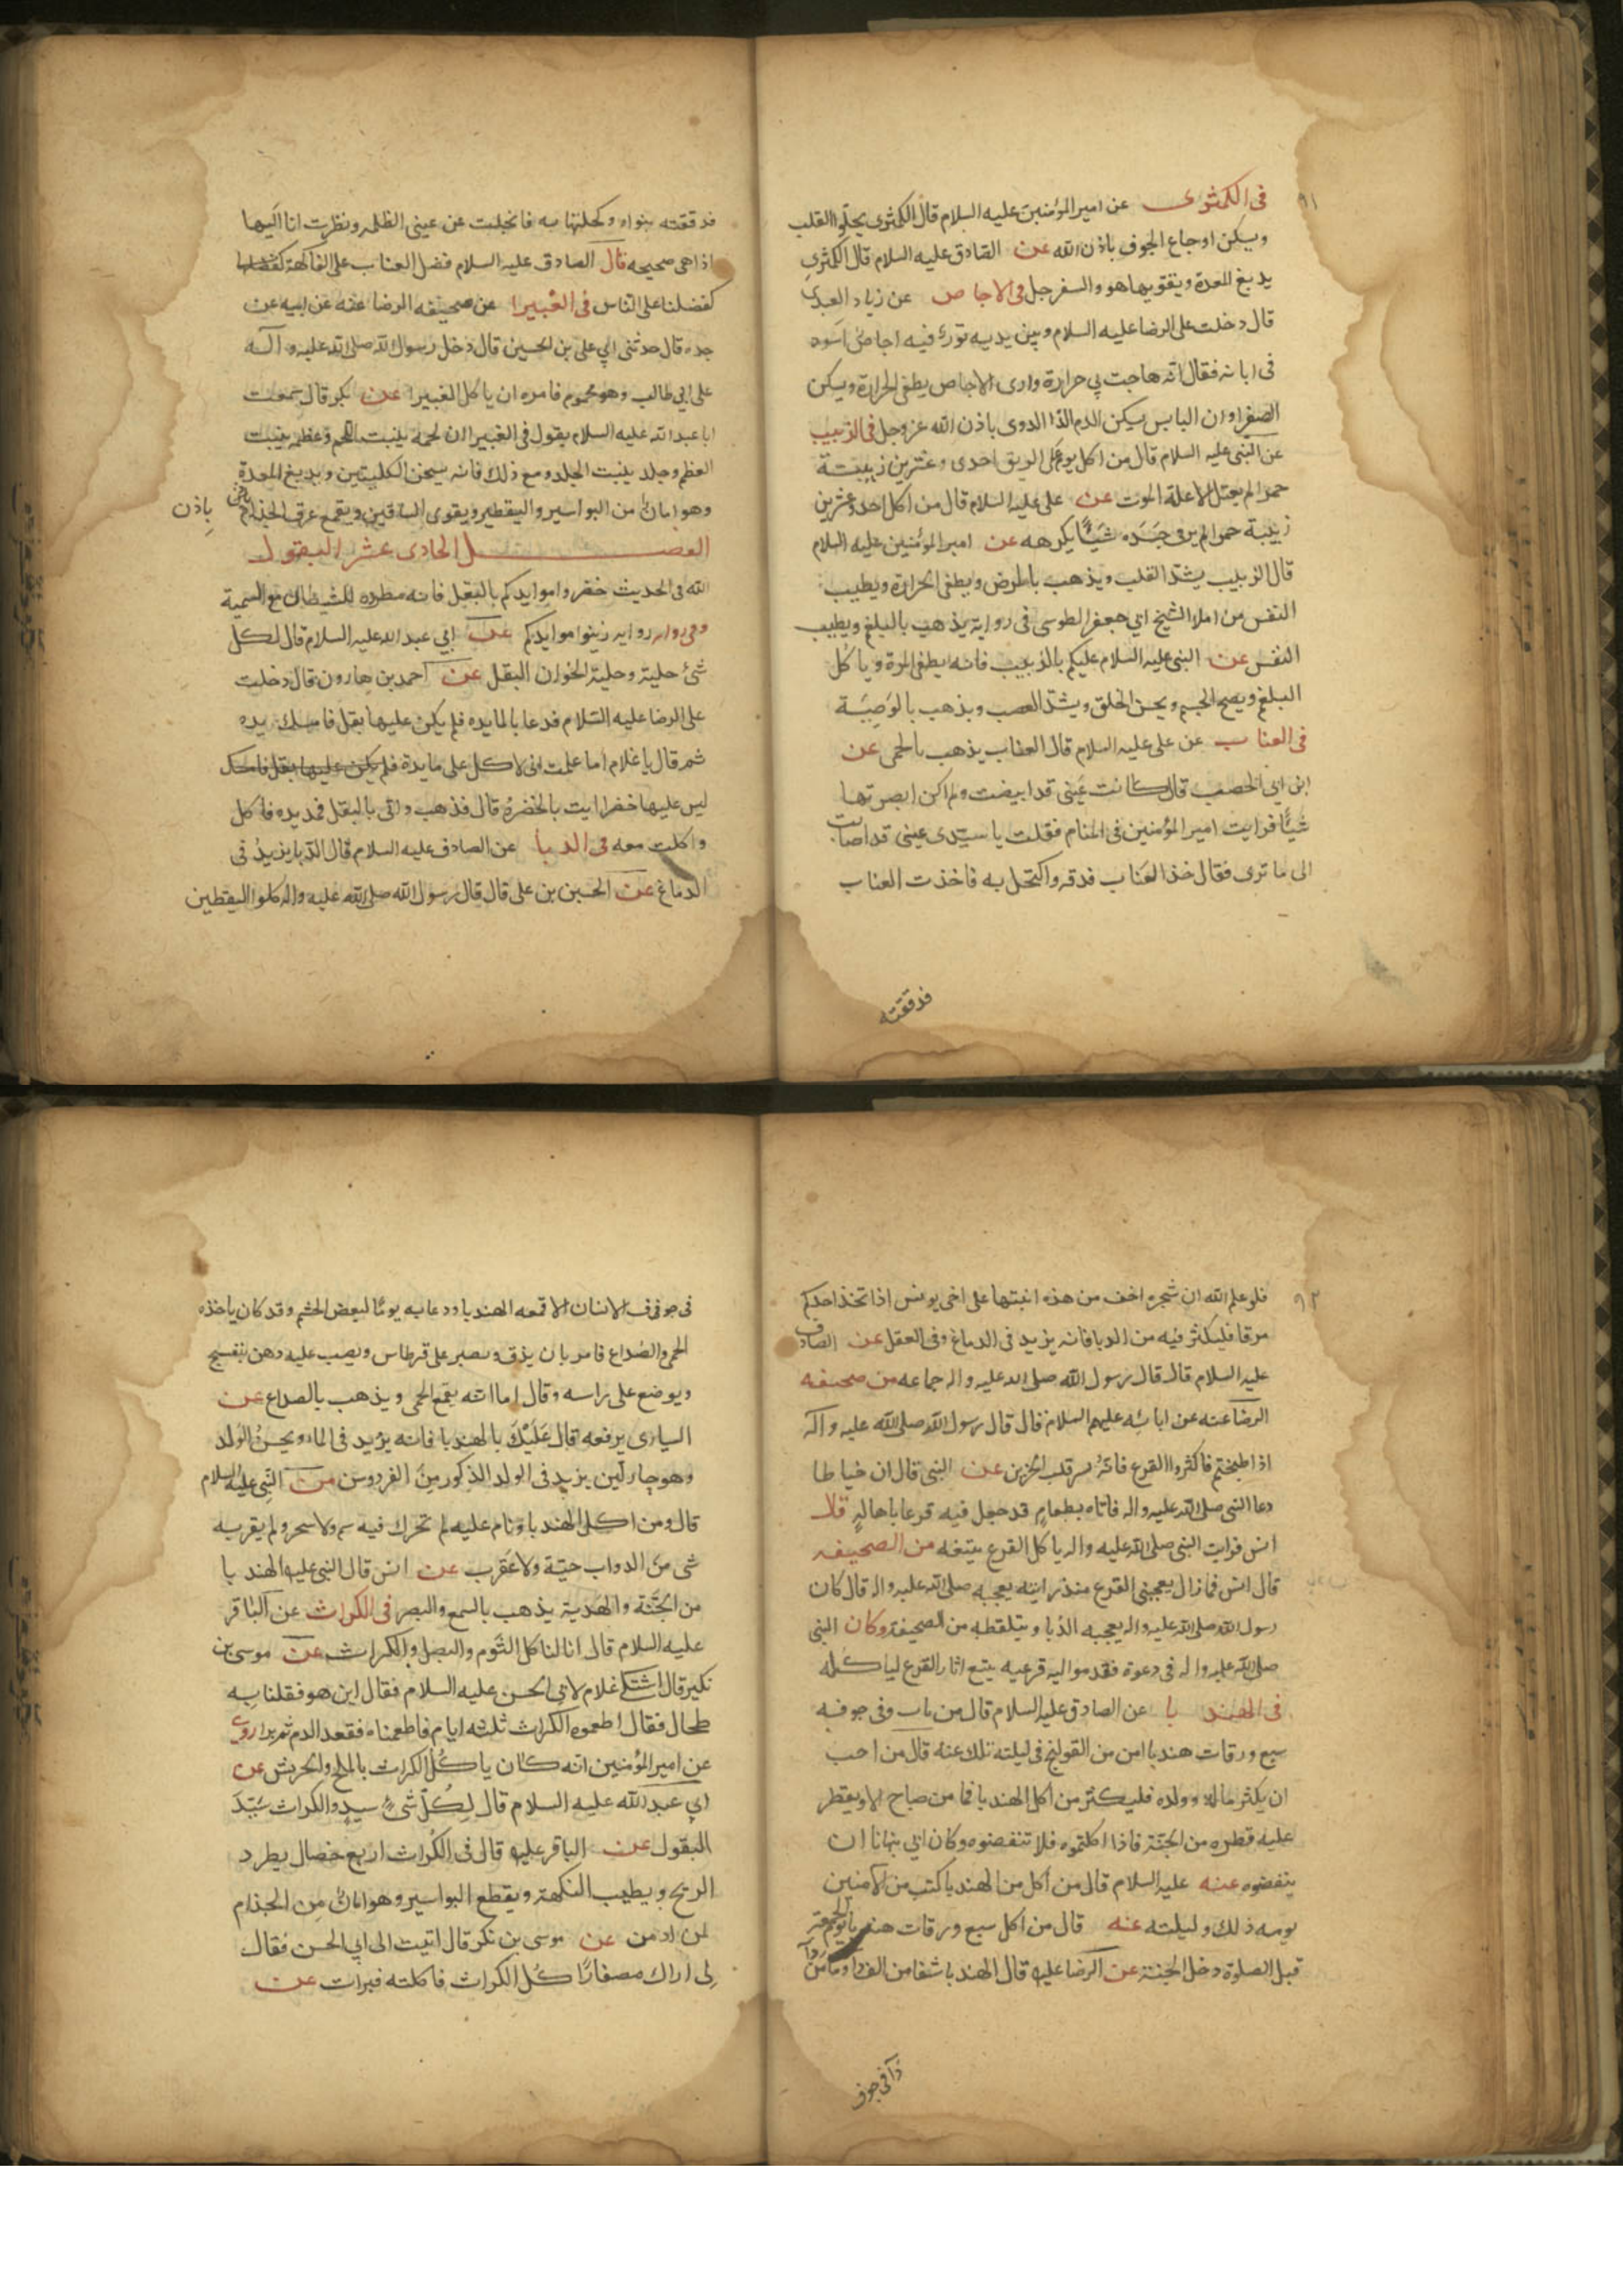 ٩١
فى الكمثوى عن امير المؤمنين عليه السلام قال الكمثوى يجلوا القلب
ويسكن اوجاع الجوف باذن الله عن الصادق عليه السلام قال الكمثرى
يدبغ المعدة ويقويها هو والسفرجل فى الاجاص عن زياد العبدى
قال دخلت على الرضا عليه السلام وبين يديه تور فيه اجاص اسود
فى ابانه فقال انه هاجت بي حرارة وارى الاجاص يطفى الحرارة ويسكن
الصفرا وان اليابس يسكن الدم الدا الدوى باذن الله عز وجل فى الزبيب
عن النبى عليه السلام قال من اكل يوم على الريق احدى وعشرين زبيبة
حمرا لم يعتل الا علة الموت عن على عليه السلام قال من اكل احد وعشرين
زبيبة حمرا لم ير فى جسده شيئا يكرهه عن امير المؤمنين عليه السلام
قال الزبيب يشد القلب ويذهب بالمرض ويطفى الحرارة ويطيب
النفس من املا الشيخ ابي جعفر الطوسى فى رواية يذهب بالبلغم ويطيب
النفس عن النبى عليه السلام عليكم بالزبيب فانه يطفى المرة وياكل
البلغم ويصح الجسم ويحسن الخلق ويشد العصب ويذهب بالوصبة
فى العناب عن على عليه السلام قال العناب يذهب بالحمى عن
ابن ابى الخصيب قال كانت عينى قد ابيضت ولم اكن ابصر بها
شيئا فرايت امير المؤمنين فى المنام فقلت يا سيدى عينى قد اصابت
الى ما ترى فقال خذ العناب فدقه واكتحل به فاخذت العناب
فدققته
فدققته بنواه وكحلتها به فانجلت عن عينى الظلمه ونظرت انا اليها
اذا هى صحيحه قال الصادق عليه السلام فضل العناب على الفاكهة كفضلنا
كفضلنا على الناس فى الغبيرا عن صحيفه الرضا عنه عن ابيه عن
جده قال حدثنى ابي على بن الحسين قال دخل رسول الله صلى الله عليه وآله
على ابي طالب وهو محموم فامره ان ياكل الغبيرا عن بكر قال سمعت
ابا عبد الله عليه السلام يقول فى الغبيرا ان لحمه ينبت اللحم وعظمه ينبت
العظم وجلد ينبت الجلد ومع ذلك فانه يسخن الكليتين ويدبغ المعدة
وهو امان من البواسير واليقطير ويقوى الساقين ويقمع عرق الجذام باذن
الفصل الحادى عشر البقول
الله فى الحديث خضروا موايدكم بالبقل فانه مطرده للشيطان مع التسمية
وفى روايه زينوا موايدكم عن ابي عبد الله عليه السلام قال لكل
شئ حلية وحلية الخوان البقل عن احمد بن هارون قال دخلت
على الرضا عليه السلام فدعا بالمايده فلم يكن عليها بقل فامسك يده
ثم قال يا غلام اما علمت انى لا اكل على مايدة فلم يكن عليها بقل فامسك
ليس عليها خضرا ايت بالخضرة قال فذهب واتى بالبقل فمد يده فاكل
واكلت معه فى الدبا عن الصادق عليه السلام قال الدبا يزيد فى
الدماغ عن الحسين بن على قال قال رسول الله صلى الله عليه واله كلوا اليقطين
٩٢
فلو علم الله ان شجره اخف من هذه انبتها على اخى يونس اذا تخذ احدكم
مرقا فليكثر فيه من الدبا فانه يزيد فى الدماغ وفى العقل عن الصادق
عليه السلام قال قال رسول الله صلى الله عليه واله جماعه من صحيفه
الرضا عنه عن ابائه عليهم السلام قال قال رسول الله صلى الله عليه واله
اذا طبختم فاكثروا القرع فانه يسر قلب الحزين عن النبى قال ان خياطا
دعا النبى صلى الله عليه واله فاتاه بطعام قد جعل فيه قرعا باهالة قال
انس فرايت النبى صلى الله عليه واله ياكل القرع يتبعه من الصحيفه
قال انس فما زال يعجبنى القرع منذ رايته يعجبه صلى الله عليه واله قال كان
رسول الله صلى الله عليه واله يعجبه الدبا ويتلقطه من الصحيفة وكان النبى
صلى الله عليه واله فى دعوة فقدموا اليه قرعيه يتبع اثار القرع لياكله
فى الهندبا عن الصادق عليه السلام قال من بات وفى جوفه
سبع ورقات هندبا امن من القولنج فى ليلته تلك عنه قال من احب
ان يكثر ماله وولده فليكثر من اكل الهندبا فما من صباح الا ويقطر
عليه قطره من الجنة فاذا اكلتموه فلا تنفضوه وكان ابي ينهانا ان
ينفضوه عنه عليه السلام قال من اكل من الهندبا كتب من الآمنين
يومه ذلك وليلته عنه قال من اكل سبع ورقات هندبا يوم الجمعة
قبل الصلوة دخل الجنة عن الرضا عليه قال الهندبا شفا من الف دا وما من دآ
دآ فى جوف
فى جوف الانسان الا قمعه الهندبا ودعا به يوما لبعض الحشم وقد كان ياخذه
الحمى والصداع فامر بان يدق ويصير على قرطاس ويصب عليه دهن بنفسج
ويوضع على راسه وقال اما انه يقمع الحمى ويذهب بالصداع عن
السيارى يرفعه قال عليك بالهندبا فانه يزيد فى الما ويحسن الولد
وهو حار لين يزيد فى الولد الذكور من الفردوس من النبى عليه السلام
قال ومن اكل الهندبا ونام عليه لم تحرك فيه سم ولا سحر ولم يقربه
شى من الدواب حية ولا عقرب عن انس قال النبى عليه الهندبا
من الجنة والهدية يذهب بالسمع والبصر فى الكراث عن الباقر
عليه السلام قال انا لناكل الثوم والبصل والكراث عن موسى بن
بكير قال اشتكى غلام لابى الحسن عليه السلام فقال اين هو فقلنا به
طحال فقال اطعموه الكراث ثلثه ايام فاطعمناه فقعد الدم ثم برا روى
عن امير المؤمنين انه كان ياكل الكراث بالملح والجريش عن
ابي عبد الله عليه السلام قال لكل شئ سيد والكراث سيد
البقول عن الباقر عليه قال فى الكراث اربع خصال يطرد
الريح ويطيب النكهة ويقطع البواسير وهو امان من الجذام
لمن ادمن عن موسى بن بكر قال اتيت الى ابي الحسن فقال
لى اراك مصفارا كل الكراث فاكلته فبرات عن